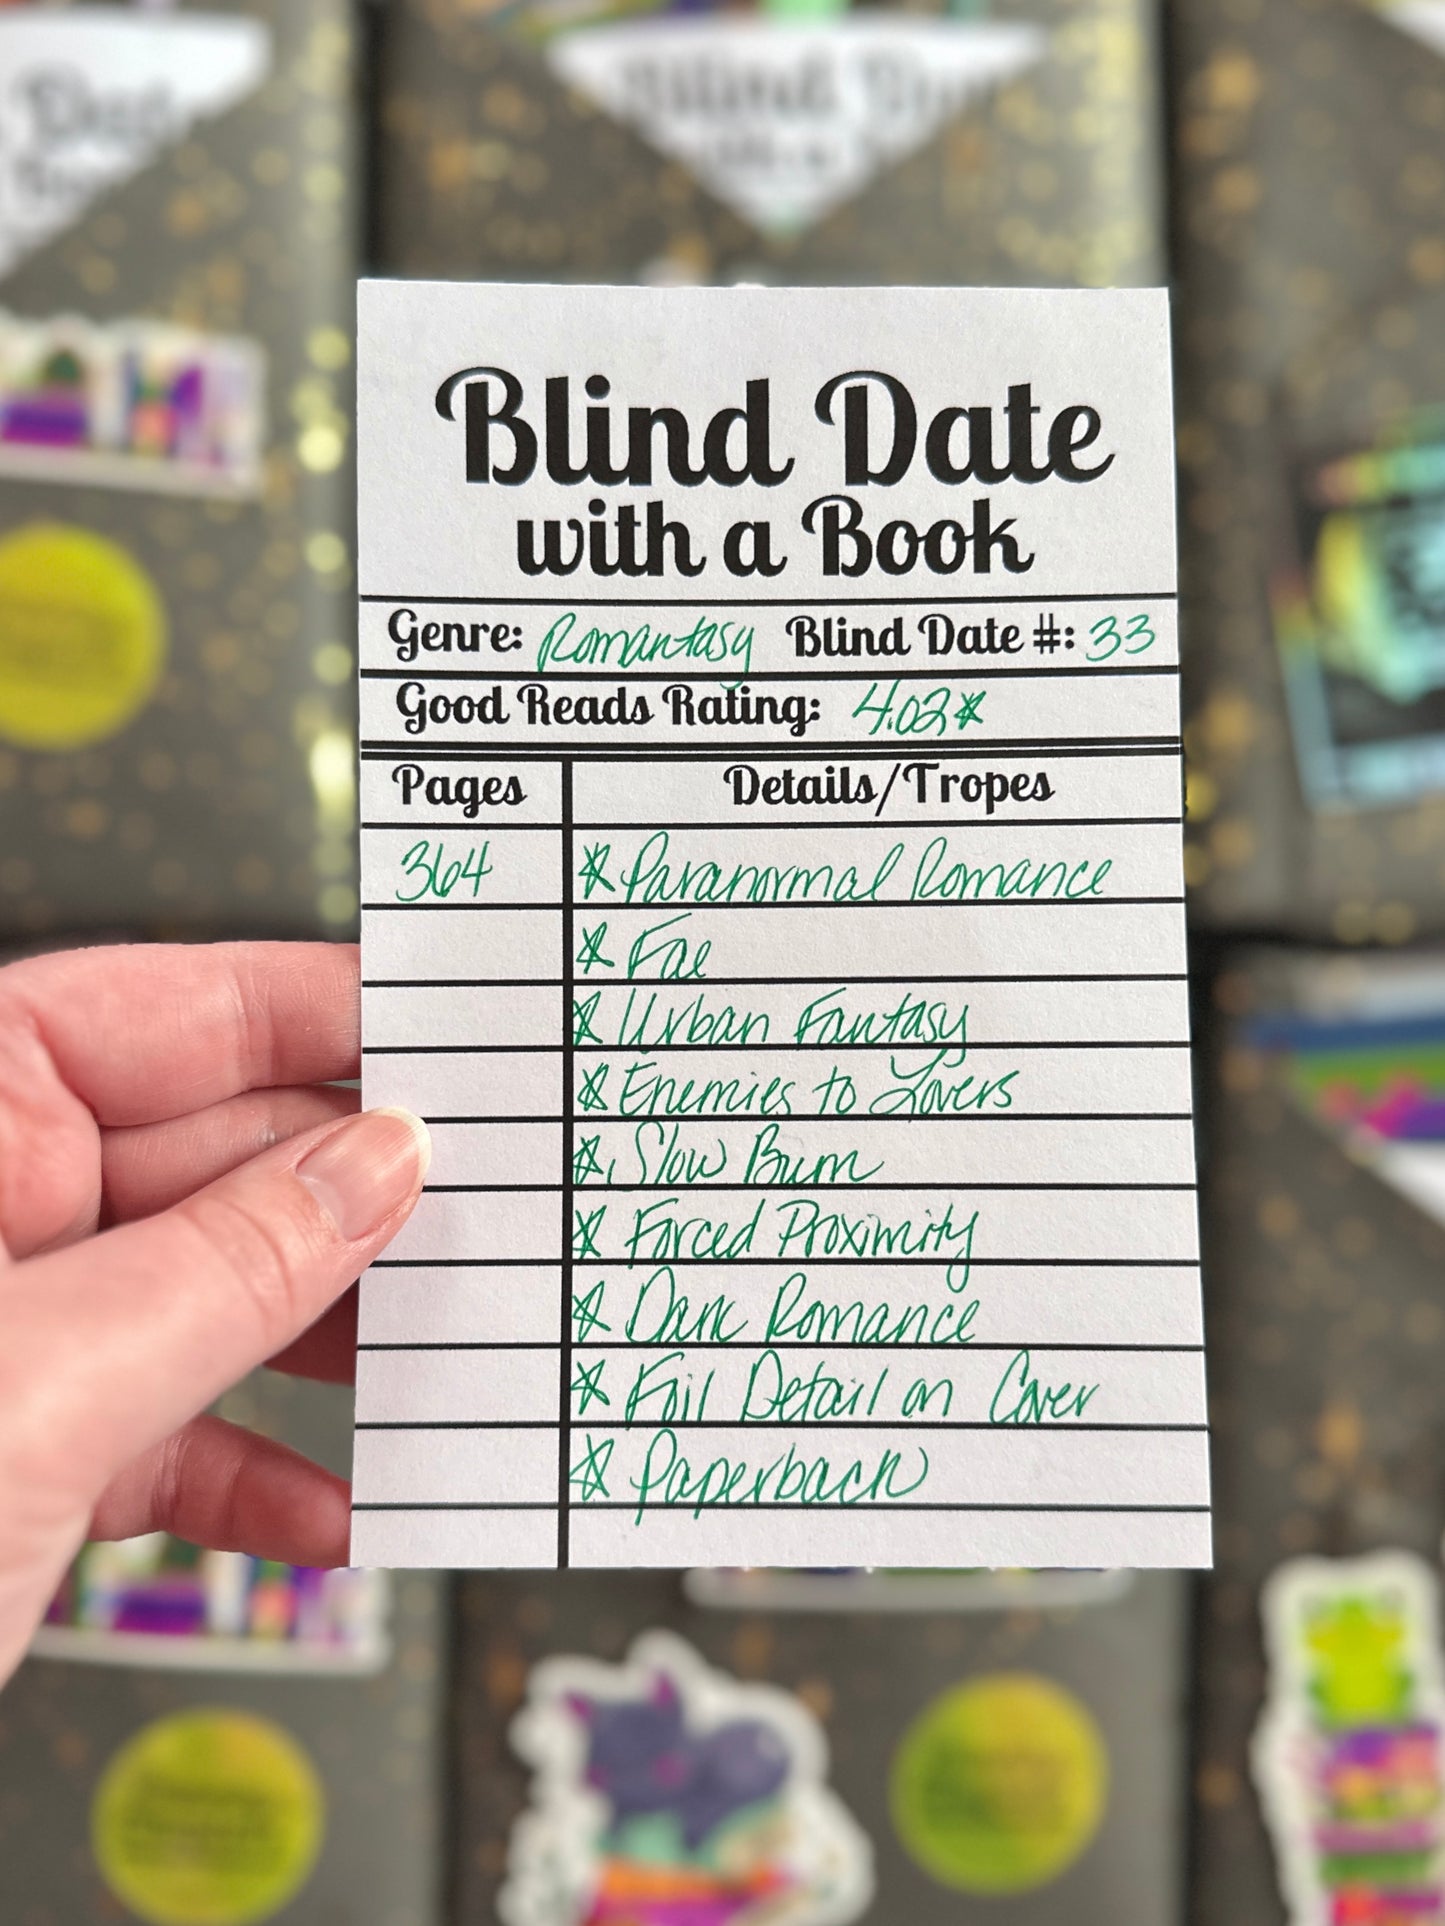 Blind Date
with a Book
Genre: Romantasy Blind Date #: 33
Good Reads Rating: 4.02★
Pages Details/Tropes
364 ★ Paranormal Romance
★ Fae
★ Urban Fantasy
★ Enemies to Lovers
★ Slow Burn
★ Forced Proximity
★ Dark Romance
★ Foil Detail on Cover
★ Paperback
Blind Dat